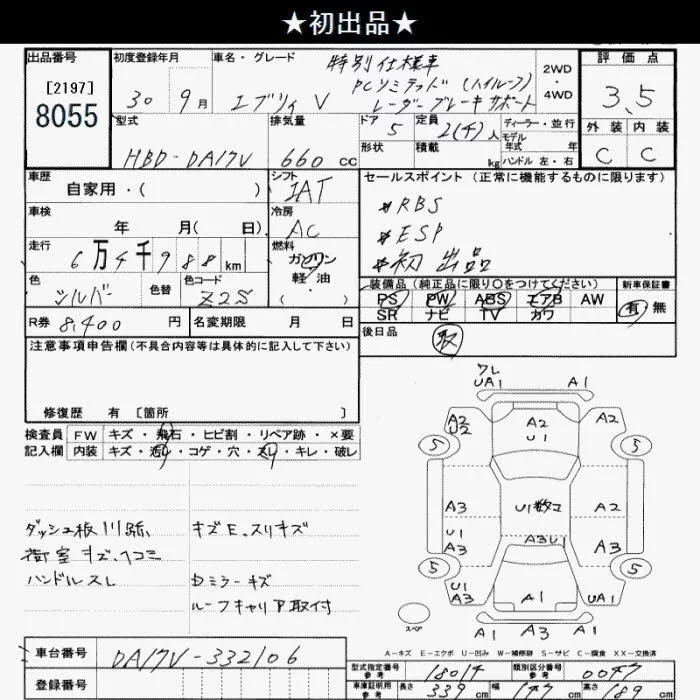 ★初出品★
出品番号
[2197]
8055
初度登録年月
30年 9月
車名・グレード
エブリィ V
特別仕様車
PCリミテッド (ハイルーフ)
レーダーブレーキサポート
2WD
・
4WD
評価点
3.5
外装 内装
C C
型式
HBD-DA17V
排気量
660 cc
ドア
5
定員
2(4)人
形状
積載
kg
ディーラー・並行
モデル
年式 年
ハンドル 左・右
車歴
自家用・( )
シフト
IAT
車検
年 月( 日)
冷房
AC
走行
6万4千988km
燃料
ガソリン
軽油
( ・ )
色
シルバー
色替
色コード
Z2S
R券 8,400 円
名変期限 月 日
セールスポイント(正常に機能するものに限ります)
*RBS
*ESP
*初出品
装備品(純正品に限り〇をつけてください)
PS PW ABS エアB AW
SR ナビ TV カワ
新車保証書
有 無
後日品
取
注意事項申告欄(不具合内容等は具体的に記入して下さい)
修復歴 有 [箇所 ]
検査員
記入欄
FW キズ・飛石・ヒビ割・リペア跡・×要
内装 キズ・汚レ・コゲ・穴・スレ・キレ・破レ
ダッシュ板川跡
荷室キズ、ヘコミ
ハンドルスレ
キズE、スリキズ
Dミラーキズ
ルーフキャリア取付
ワレ
UA1 A1
A2
U2
A2
U1
A2
5 5
A3
U1
A3
U1数コ
A3U1
A2
A3
5 5
U1
UA3
A1
UA1
A1 A3 A1
スペア
A-キズ E-エクボ U-凹み W-補修跡 S-サビ C-腐食 XX-交換済
車台番号
DA17V-332106
登録番号
型式指定番号
参考
18014
類別区分番号
参考
0047
車庫証明用
参考
長さ 339 cm
幅 147 cm
高さ 189 cm